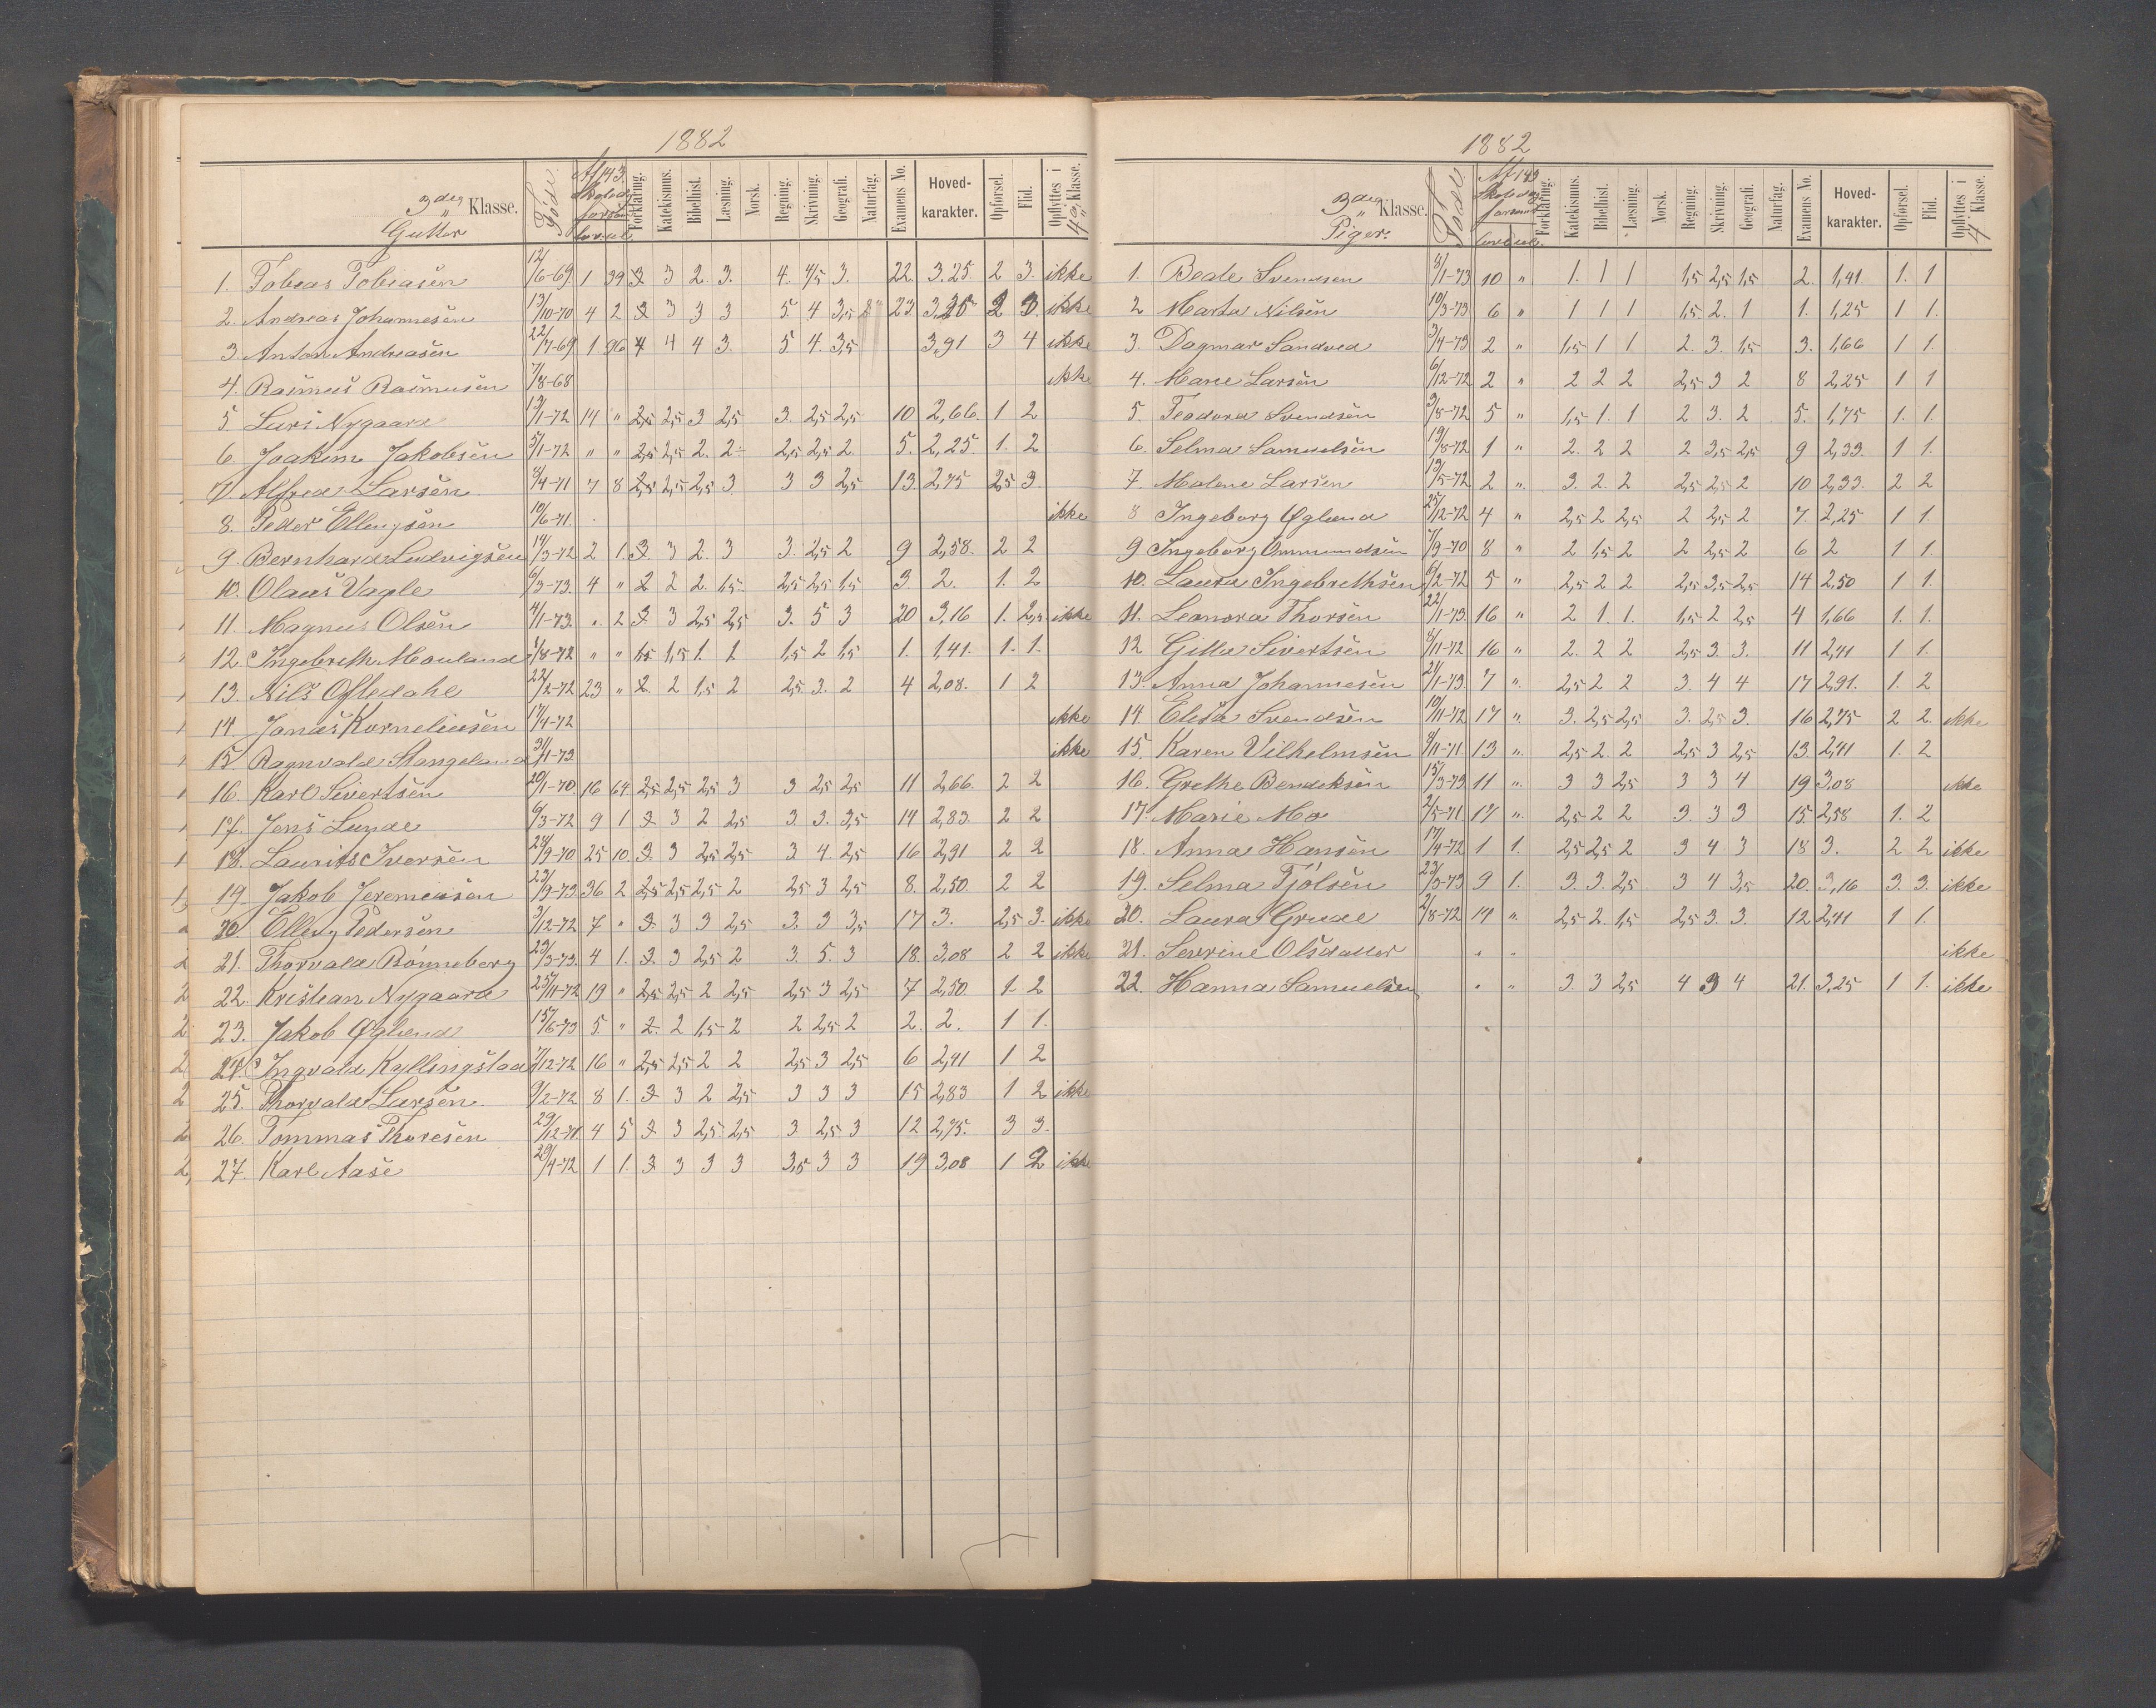 1882
3die Klasse.
Gutter
Född.
Af 143
Skoledage
forsømt
Forklaring. Katekismus. Bibelhist. Læsning. Norsk. Regning. Skrivning. Geografi. Naturfag. Examens No. Hoved-karakter. Opførsel. Flid. Opflyttes i 4de Klasse.
1. Tobias Tobiasen 12/6-69 1 39 3 3 2. 3. 4. 4,5 3. 22. 3.25 2 3. ikke
2. Andreas Johannesen 13/10-70 4 2 3 3 3 3 5. 4 3,5 23 2 3. ikke
3. Anton Andreasen 22/7-69 1 36 4 4 4 3. 5 4. 3,5 3,91 3 4 ikke
4. Rasmus Rasmusen 7/8-68 ikke
5 Lars Nygaard 13/1-72 14 " 2,5 2,5 3 2,5 3. 2,5 2,5 10 2,66. 1 2
6. Joakim Jakobsen 5/1-72 " " 2,5 2,5 2. 2 2,5 2,5 2. 5. 2,25. 1. 2
7. Alfred Larsen 8/4-71 7 8 2,5 2,5 2,5 3 3 3 2,5 13. 2,75 2,5 3.
8. Peder Ellingsen 10/6-71. ikke
9. Bernhard Ludvigsen 14/3-72 2 1. 3 3 2. 3 3. 2,5 2 9 2,58. 2 2
10. Olaus Vagle 6/3-73. 4 " 2 2 2. 1,5 2,5 2,5 1,5 3. 2. 1. 2
11. Magnus Olsen 4/1-73. " 2 3 3 2,5 2,5 3. 5 3 20 3,16 1. 2,5 ikke
12. Ingebreth Mouland 4/8-72 " " 1,5 1,5 1. 1 1,5 2 1,5 1. 1,41. 1. 1.
13. Nils Oftedahl 22/2-72 23 " 2. 2 1,5 2 2,5. 3. 2 4 2,08. 1 2
14 Jonas Korneliusen 17/4-72 ikke
15 Ragnvald Stangeland 31/1-73. ikke
16. Karl Sivertsen 20/1-70. 16 64 2,5 2,5 2,5 3 3 2,5 2,5 11 2,66. 2 2
17. Jens Lunde 6/3-72 9 1 3 3 2 2,5 3. 3. 3,5 14 2,83. 2 2
18. Laurits Iversen 24/9-70 25 10. 3 3 2,5 2,5 3 4. 2,5 16 2,91 2 2
19. Jakob Jeremiasen 23/9-73 36 2 2,5 2,5 2,5 2 2,5 3 2,5 8. 2,50. 2 2
20 Elling Pedersen 3/12-72 7 " 3 3 3 2,5 3. 3 3,5 17 3. 2,5 3. ikke
21. Thorvald Rønneberg 23/3-73. 4 1. 3 3 2,5 2 3. 5. 3 18. 3,08 2 2 ikke
22. Kristian Nygaard 25/11-72 19 " 2,5 2,5 2 2,5 2,5 3 2,5 7 2,50. 1. 2
23. Jakob Øglænd 15/6-73 5. " 2. 2 1,5 2 2 2,5 2 2. 2. 1 1.
24. Ingvald Kyllingstad 7/12-72 16 " 2,5 2,5 2 2 2,5 3 2,5 6 2,41 1 2
25. Thorvald Larsen 9/2-72 8 1. 3 3 2 2,5 3 3 3 15 2,83 1 2 ikke
26. Tommas Thoresen 29/12-71 4 5 3 3 2,5 2,5 3 2,5 3 12 2,75. 3 3.
27. Karl Aase 29/4-72 1 1. 3 3 3 3 3,5 3 3 19 3,08 1 2 ikke
1882
3die Klasse.
Piger.
Född.
Af 143
Skoledage
forsømt
Forklaring. Katekismus. Bibelhist. Læsning. Norsk. Regning. Skrivning. Geografi. Naturfag. Examens No. Hoved-karakter. Opførsel. Flid. Opflyttes i 4 Klasse.
1. Beate Svendsen 8/1-73 10 " 1. 1 1 1,5 2,5 1,5 2. 1,41. 1. 1
2 Marta Nilsen 10/3-73 6 " 1 1 1 1,5. 2. 1 1. 1,25 1 1.
3. Dagmar Sandved 3/4-73 2 " 1,5 1 1 2. 3. 1,5 3. 1,66 1 1.
4. Marie Larsen 6/12-72 2 " 2 2 2 2,5 3 2 8 2,25 1 1
5. Teodora Svendsen 3/8-72 5 " 1,5 1. 1 2 3. 2 5. 1,75 1. 1.
6. Selma Samuelsen 19/8-72 1 " 2. 2 2 2 3,5 2,5 9 2,33. 1 1.
7. Malene Larsen 13/5-72 2 " 3. 2. 2 2,5 2,5 2 10 2,33. 2 2
8 Ingeborg Øglænd 25/12-72 4 " 2,5 2 2,5 2 2,5 2 7. 2,25 1 1.
9 Ingeborg Ommundsen 7/9-70 8 " 2 1,5 2 2 2,5 2 6 2 1 1.
10. Laura Ingebrethsen 6/2-72 5 " 2,5 2 2 2,5 3,5 2,5 14 2,50 1 1.
11. Leonora Thorsen 22/1-73. 16 " 2 1 1. 1,5 2 2,5 4 1,66 1. 1.
12 Gitta Sivertsen 8/11-72 16 " 2. 2 2 2,5 3. 3. 11 2,41 1 1.
13. Anna Johannesen 21/1-73 7 " 2,5 2 2 3. 4 4 17 2,91. 1. 2
14. Elisa Svendsen 10/11-72 17 " 3. 2,5 2,5 3. 2,5 3. 16 2,75 2 2. ikke
15. Karen Vilhelmsen 9/11-71. 13 " 2,5 2. 2 2,5 3 2,5 13. 2,41 1. 2
16. Grethe Bendiksen 15/3-73 11 " 3 3 2,5 3 3 4 19 3,08 ikke
17. Marie Mo 2/5-71 17 " 2,5 2 2 3 3 3 15. 2,58 1. 2
18. Anna Hansen 17/4-72 1 1. 2,5 2,5 2 3 4 3 18 3. 2 2 ikke
19. Selma Tjølsen 23/3-73 9 1. 3. 3. 2,5 3 4 3,5 20. 3,16 3. 3. ikke
20. Laura Grude 2/8-72 14 " 2,5 2. 1,5 2,5 3. 3. 12 2,41 1 1.
21. Serrine Olsdatter " " ikke
22. Hanna Samuelsen " " 3. 3 2,5 4 3 4 21. 3,25 1 1. ikke